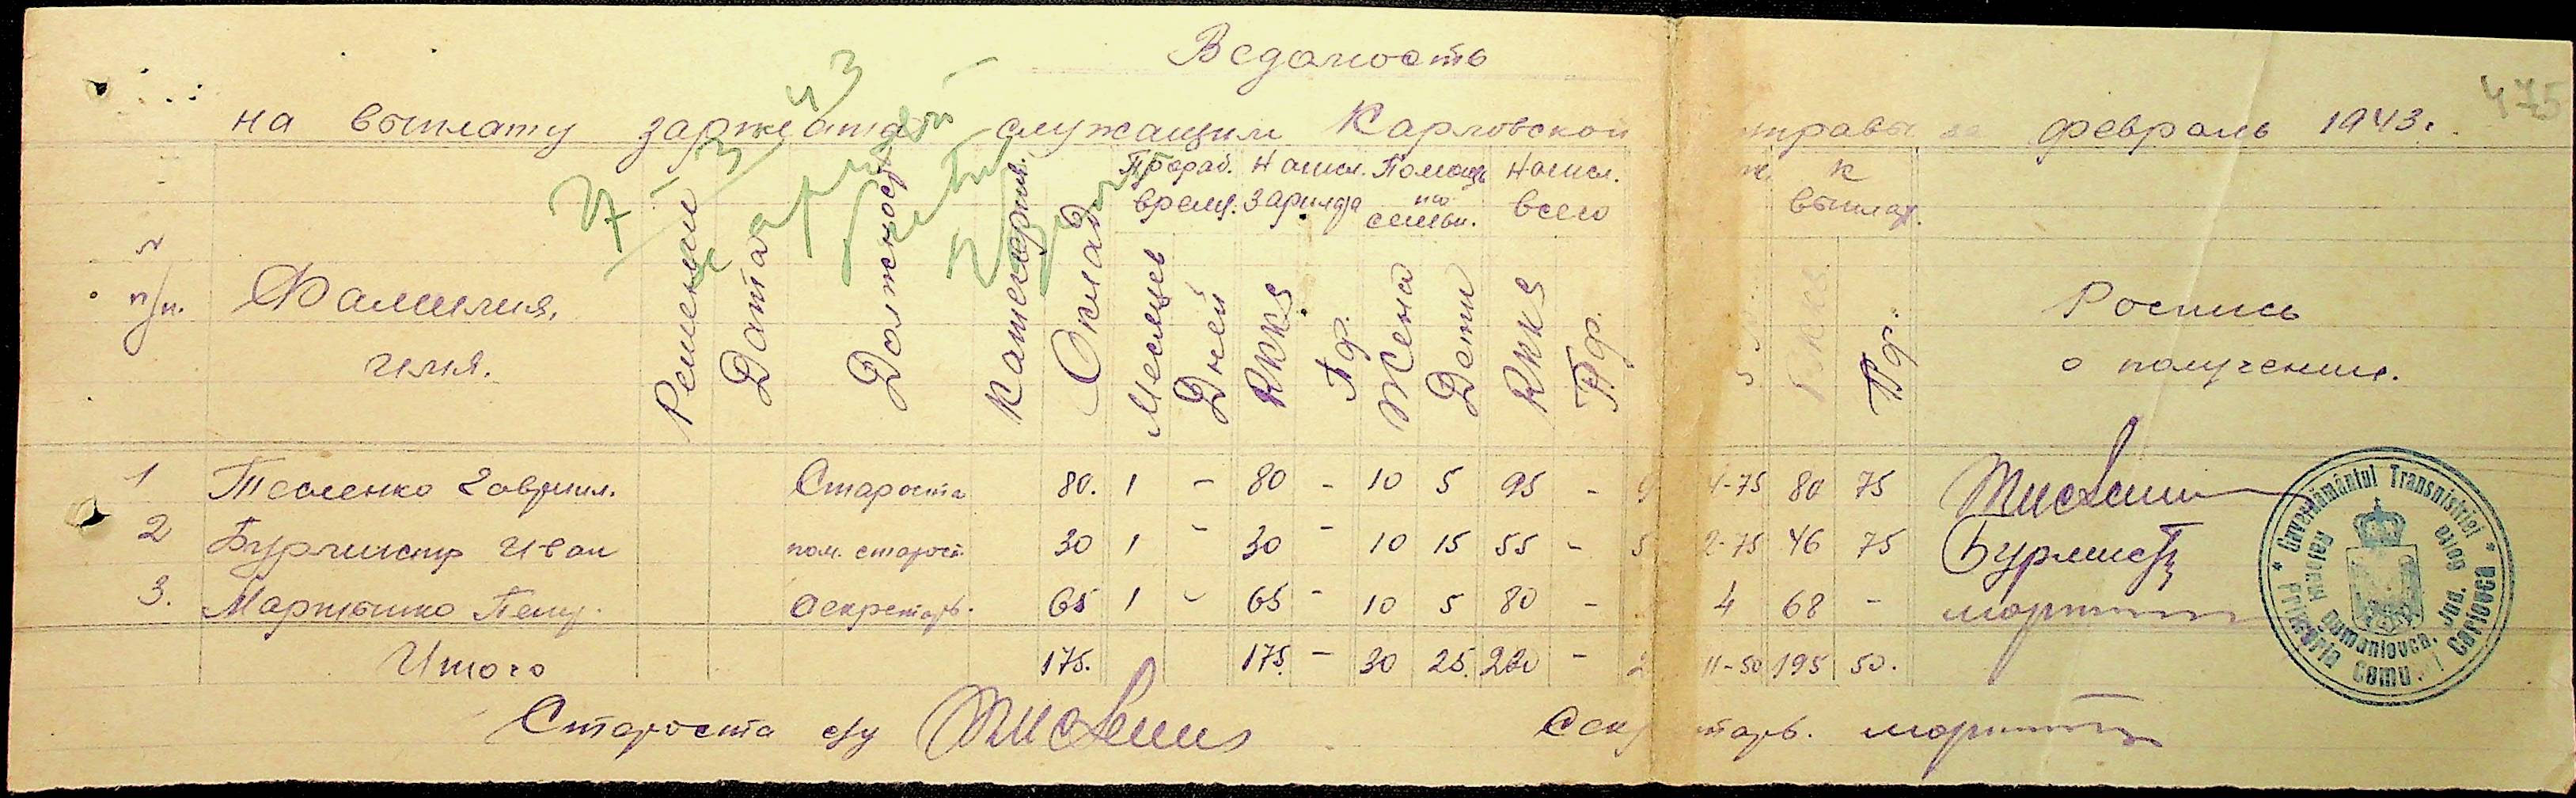 475
Ведомость
на выплату зарплаты служащим Карловской управы за февраль 1943г.
№ п/п.
Фамилия, имя.
Решение
Дата
Должность
Категория
Оклад
Прораб. время.
Месяцев
Дней
Начисл. Зарплата
RKKS
Пф.
Помощь по семьи.
Жена
Дети
Начисл. всего
RKKS
Пф.
К выплат.
RKKS
Пф.
Роспись о получении.
1 Тесленко Гавриил. Староста 80. 1 - 80 - 10 5 95 - 4-75 80 75
2 Бурмистр Иван пом. старост. 30 1 - 30 - 10 15 55 - 5 2-75 46 75 Бурмистр
3. Мартышко Петр. Секретарь. 65 1 - 65 - 10 5 80 - 4 68 -
Итого 175. 175. - 30 25. 230 - 2 11-50 195 50.
Староста с/у
Секретарь.
* Guvernământul Transnistriei *
Primăria Comunei Carlovca
Raionul Domaniovca, Jud. Golta